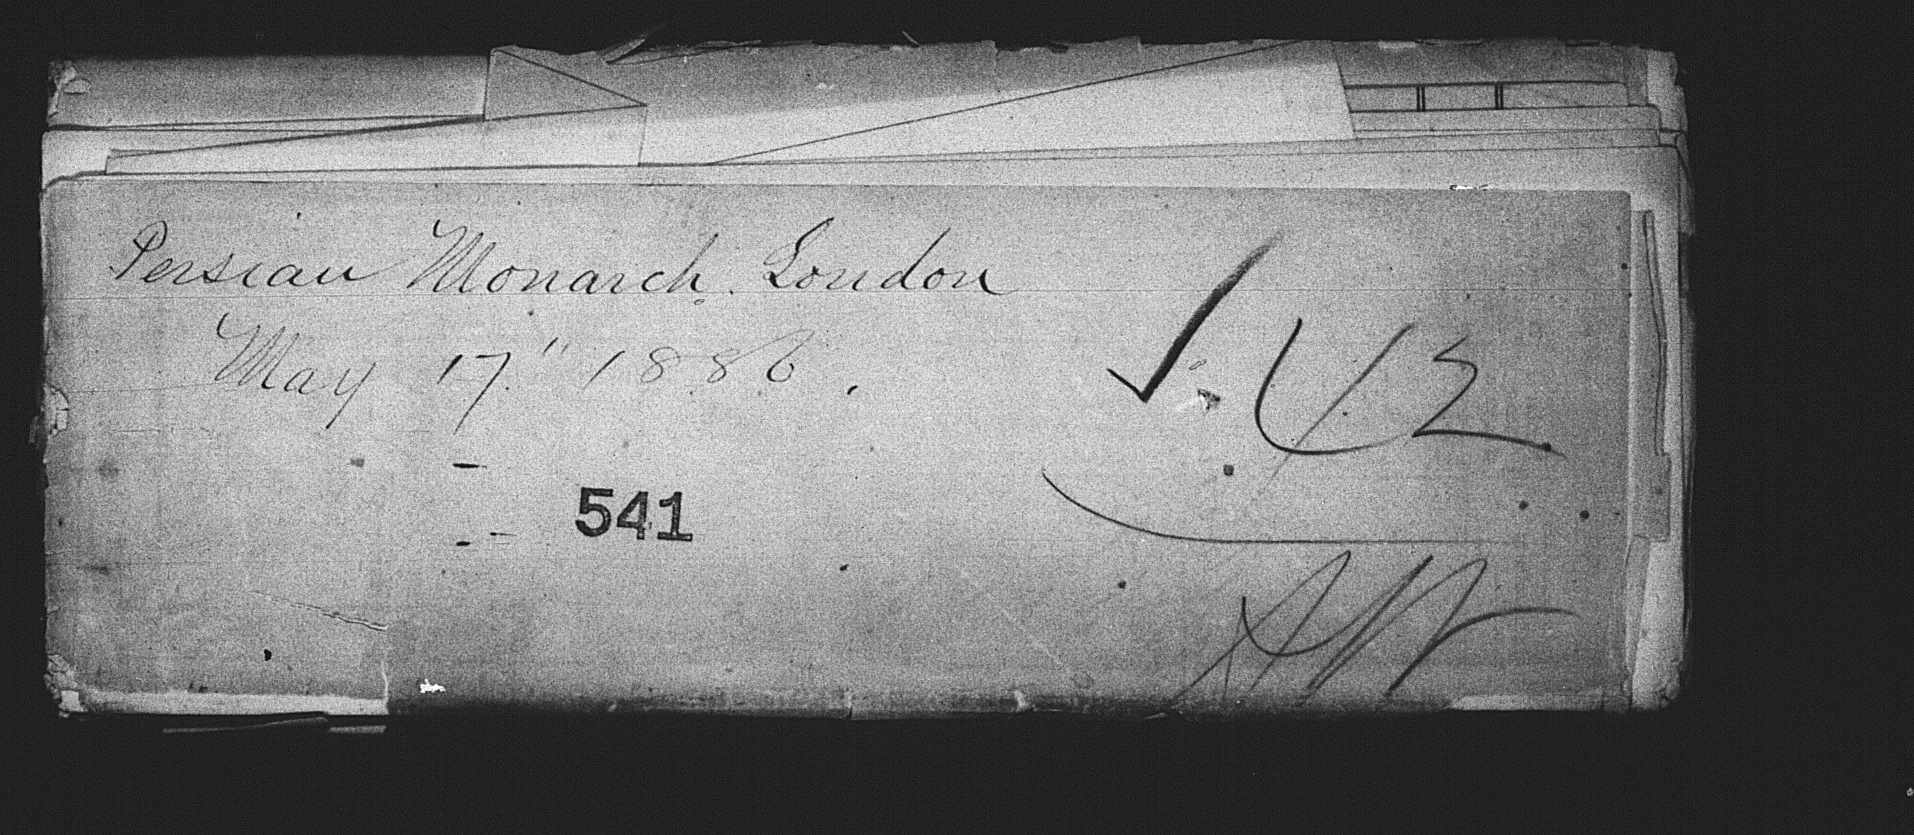 Persian Monarch. London
May 17" 1886.
42
541